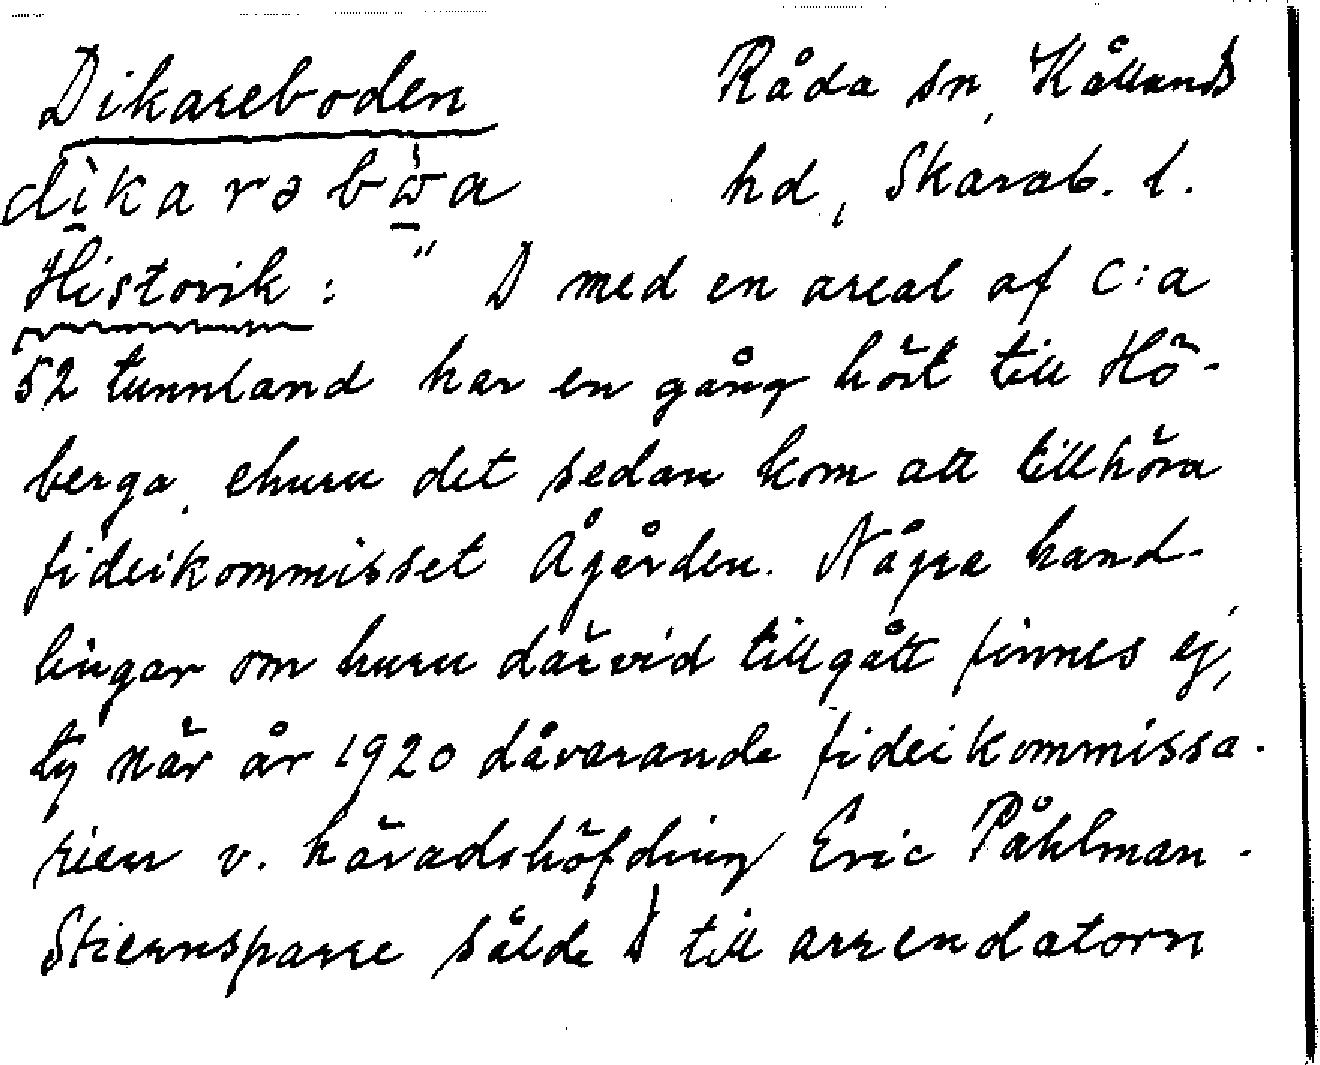 Dikareboden
Råda sn, Kållands
dikarəbωa
hd, Skarab. l.
Historik: " D med en areal af c:a
52 tunnland har en gång hört till Hö-
berga, ehuru det sedan kom att tillhöra
fideikommisset Ågården. Några hand-
lingar om huru därvid tillgått finnes ej,
ty när år 1920 dåvarande fideikommissa-
rien v. häradshöfding Eric Påhlman-
Stiernsparre sålde D till arrendatorn